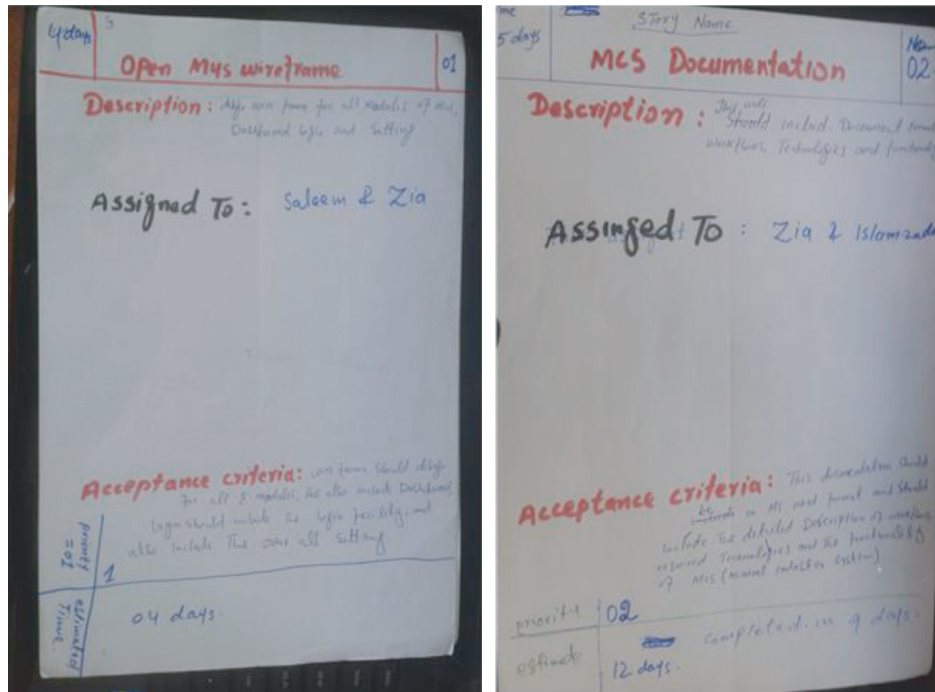 4 days
Open Mys wireframe
01
Description: for all modules of
Dashboard login and Setting
Assigned To: Saleem & Zia
Acceptance criteria: should
for all 5 modules, also include Dashboard,
login should include the login facility, and
also include The over all Setting
priority
= 01
1
estimated
Time.
04 days
5 days
STory Name
02
MCS Documentation
Description: This
should Document
workflow, Technologies and
Assinged To : Zia &
Acceptance criteria: This documentation should
be in Ms word format and should
include The detailed Description of workflow,
required Technologies and the functionality
of Mcs
priority
02
estimate
completed in 9 days.
12 days.